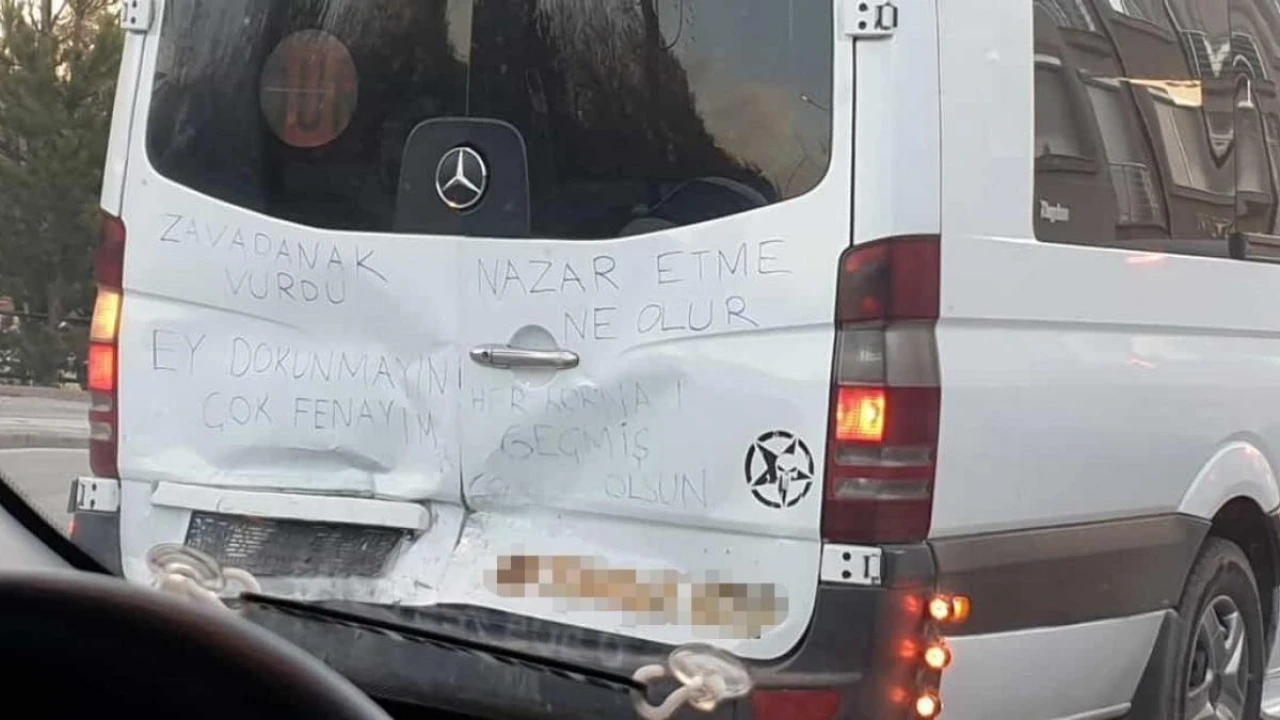 ZAVADANAK
VURDU
NAZAR ETME
NE OLUR
EY DOKUNMAYIN!
ÇOK FENAYIM
HER
GEÇMİŞ
OLSUN